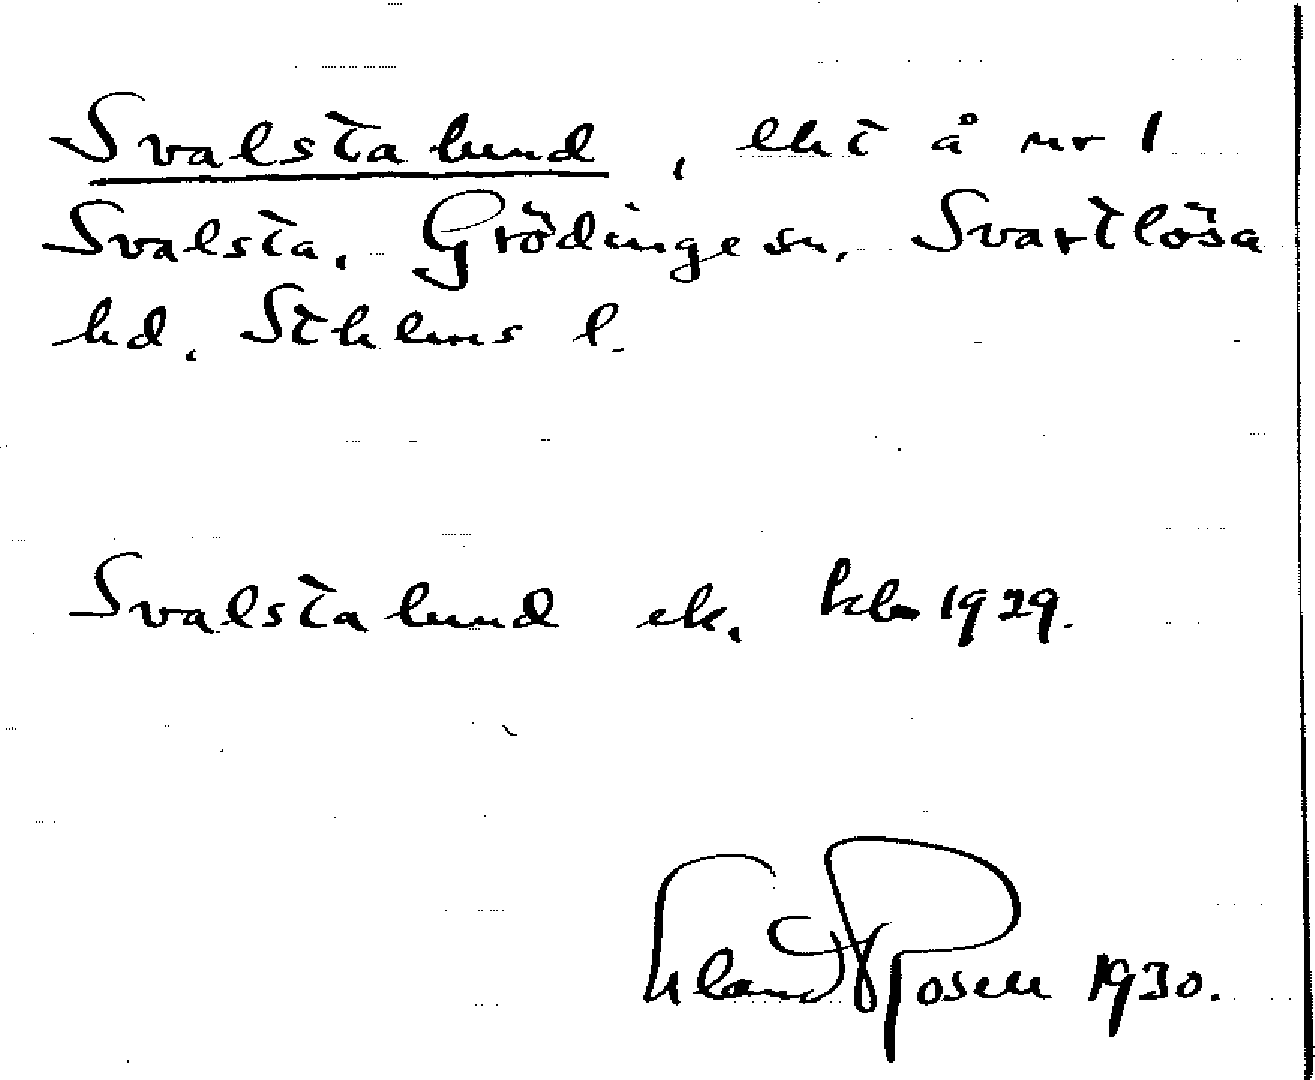 Svalstalund, lht å nr 1
Svalsta, Grödinge sn, Svartlösa
hd, Sthlms l.
Svalstalund ek. kbl 1929.
Erland Rosell 1930.